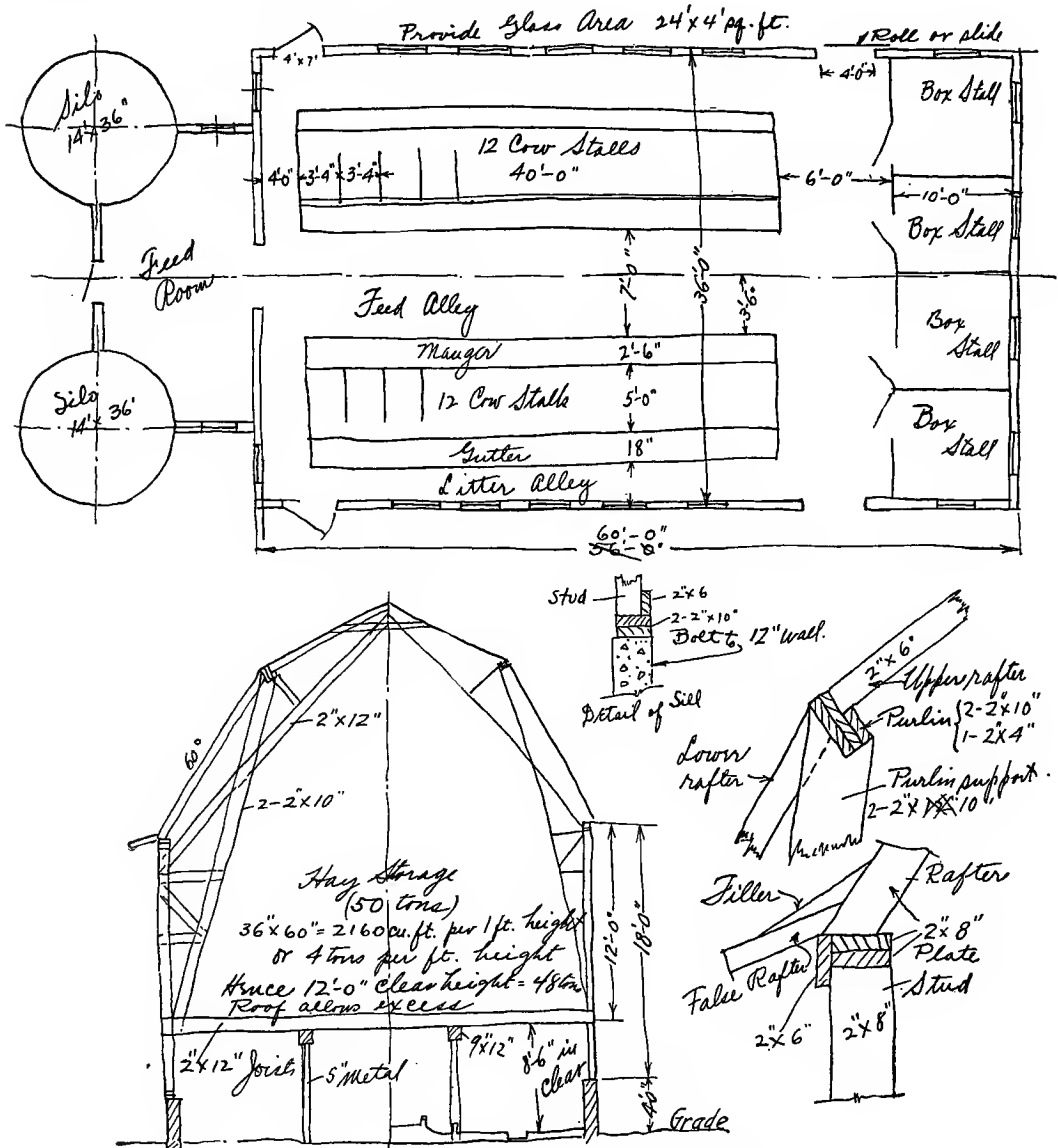 Provide Glass Area 24'x4' sq. ft.
Roll or slide
4'x7'
4'-0"
Silo
14'x36"
Box Stall
12 Cow Stalls
40'-0"
4'-0"
3'-4"
3'-4"
6'-0"
10'-0"
Box Stall
Feed
Room
7'-0"
36'-0"
3'-6"
Feed Alley
Box
Stall
Manger
2'-6"
Silo
14'x36'
12 Cow Stalls
5'-0"
Box
Stall
Gutter
18"
Litter Alley
60'-0"
56'-0"
Stud
2"x6
2-2"x10"
Bolt to 12" wall.
Detail of Sill
2"x6"
Upper rafter
Purlin { 2-2"x10"
1-2"x4"
Lower
rafter
Purlin support.
2-2"x10"
60°
2"x12"
2-2"x10"
Hay Storage
(50 tons)
36"x60" = 2160 cu. ft. per 1 ft. height
or 4 tons per ft. height
Hence 12'-0" clear height = 48 tons
Roof allows excess
12'-0"
18'-0"
Filler
Rafter
2"x8"
Plate
False Rafter
Stud
2"x6"
2"x8"
2"x12" Joists
5" Metal
9"x12"
8'-6" in
clear
4'-0"
Grade